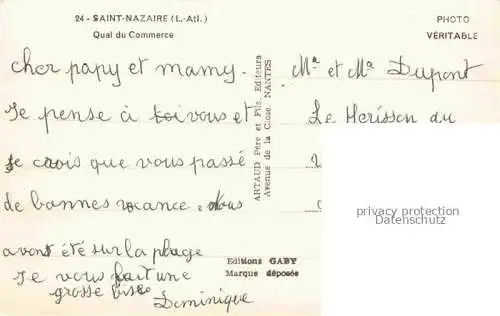 24 - SAINT-NAZAIRE (L.-Atl.)
Quai du Commerce
PHOTO
VÉRITABLE
cher papy et mamy.
Je pense à toi vous et
je crois que vous passé
de bonnes vacance. Nous
avont été sur la plage
Je vous fait une
grosse bise
Dominique
ARTAUD Père et Fils, Editeurs
Avenue de la Close, NANTES
Editions GABY
Marque déposée
Mr et Ma Dupont
Le Herisson du
privacy protection
Datenschutz